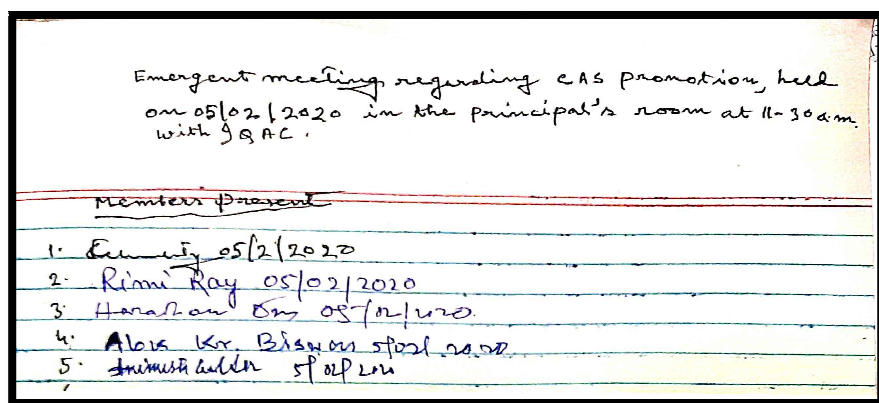 Emergent meeting regarding CAS promotion, held
on 05/02/2020 in the principal's room at 11-30 a.m.
with IQAC.
Members Present
1. 05/2/2020
2. Rimi Ray 05/02/2020
3. 05/02/2020.
4. Kr. Biswas 5/02/2020
5. 5/02/2020